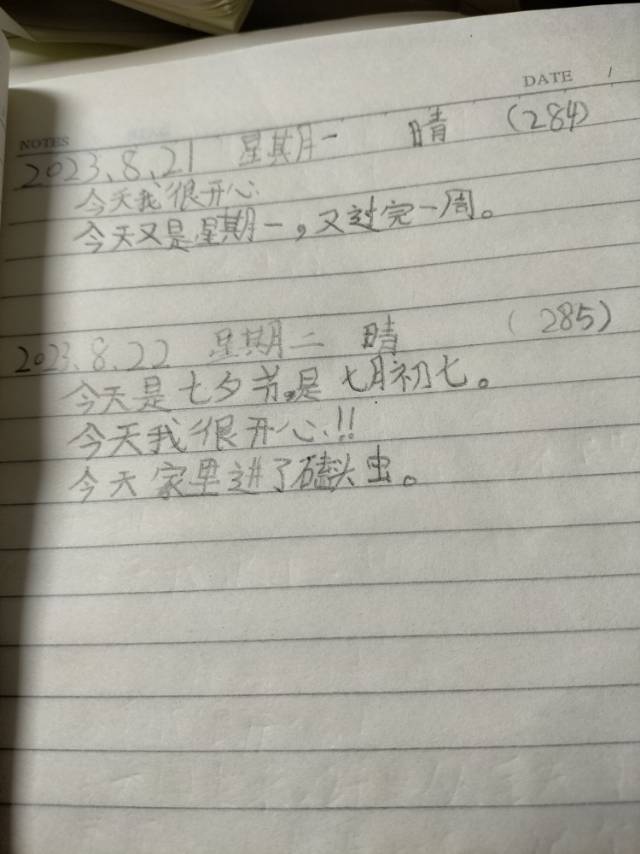 DATE /
NOTES
2023.8.21 星期一 晴 (284)
今天我很开心
今天又是星期一,又过完一周。
2023.8.22 星期二 晴 (285)
今天是七夕节,是七月初七。
今天我很开心!!
今天家里进了磕头虫。